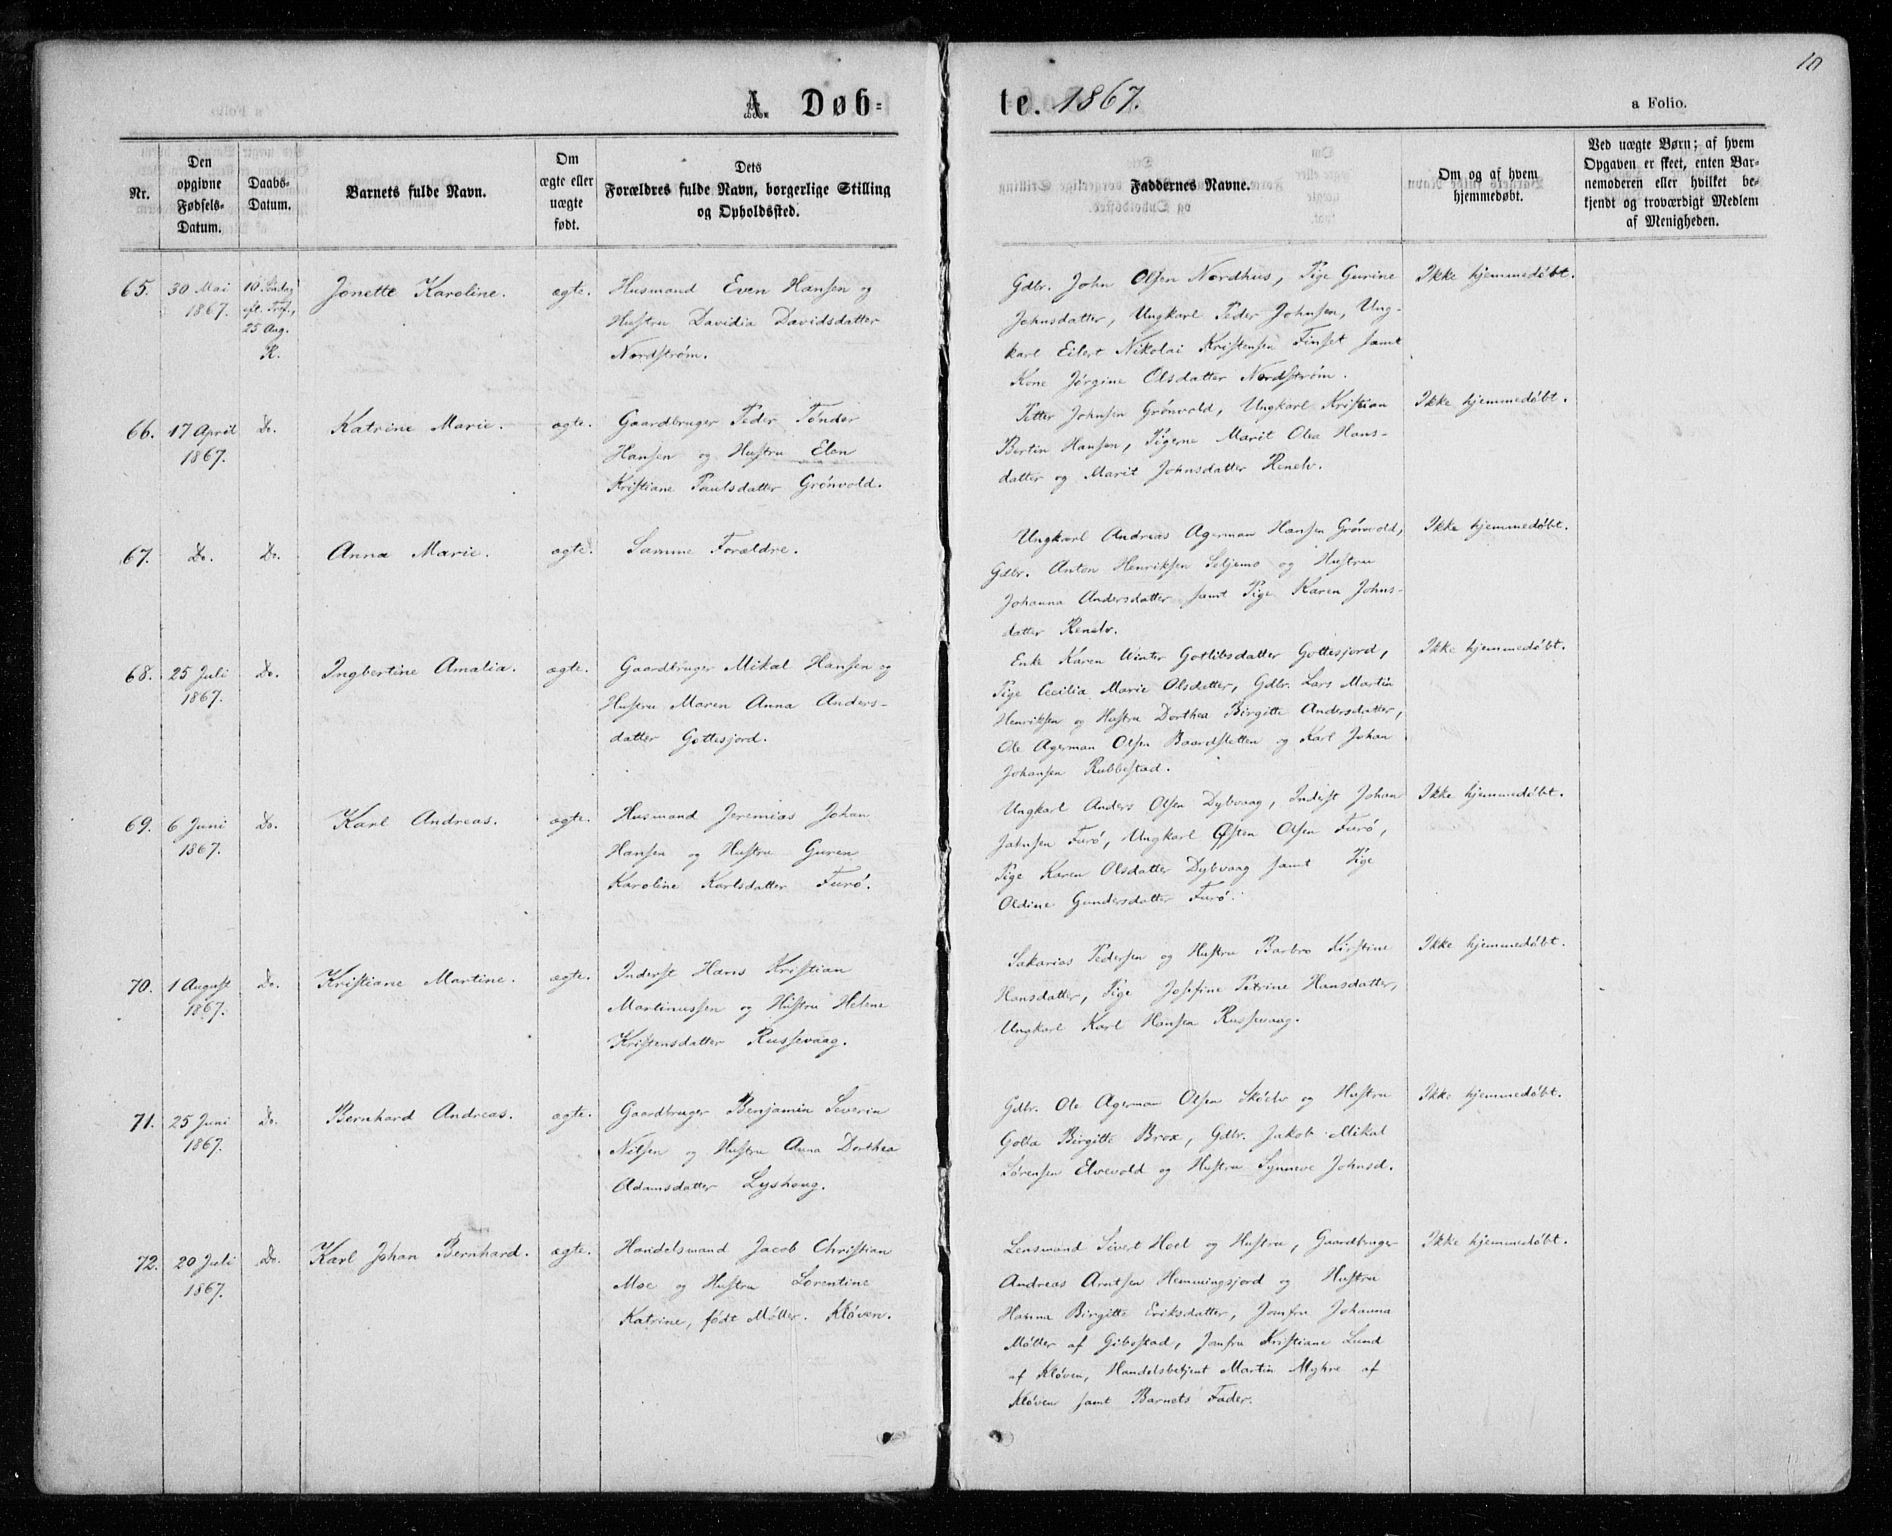 10
A. Døb=
te. 1867.
a Folio.
Nr.
Den
opgivne
Fødsels-
Datum.
Daabs-
Datum.
Barnets fulde Navn.
Om
ægte eller
uægte
født.
Dets
Forældres fulde Navn, borgerlige Stilling
og Opholdssted.
Faddernes Navne.
Om og af hvem
hjemmedøbt.
Ved uægte Børn; af hvem
Opgaven er skeet, enten Bar-
nemoderen eller hvilket be-
kjendt og troværdigt Medlem
af Menigheden.
65.
30 Mai
1867.
10. Søndag
eft. Tref.,
25 Aug.
K.
Jonette Karoline.
ægte.
Husmand Even Hansen og
Hustru Davidia Davidsdatter
Nordstrøm.
Gdbr. John Olsen Nordhus, Pige Gurine
Johnsdatter, Ungkarl Peder Johnsen, Ung-
karl Eilert Nikolai Kristensen Finset samt
Kone Jørgine Olsdatter Nordstrøm.
Ikke hjemmedøbt.
66.
17 April
1867.
Do.
Katrine Marie.
ægte.
Gaardbruger Peder Tønder
Hansen og Hustru Elen
Kristiane Paulsdatter Grønvold.
Petter Johnsen Grønvold, Ungkarl Kristian
Bertin Hansen, Pigerne Marit Olea Hans-
datter og Marit Johnsdatter Renelv.
Ikke hjemmedøbt.
67.
Do.
Do.
Anna Marie.
ægte.
Samme Forældre.
Ungkarl Andreas Agerman Hansen Grønvold,
Gdbr. Anton Henriksen Seljemo og Hustru
Johanna Andersdatter samt Pige Karen Johns-
datter Renelv.
Ikke hjemmedøbt.
68.
25 Juli
1867.
Do.
Ingbertine Amalia.
ægte.
Gaardbruger Mikal Hansen og
Hustru Maren Anna Anders-
datter Gottesjord.
Enke Karen Winter Gotlibsdatter Gottesjord,
Pige Cecilia Marie Olsdatter, Gdbr. Lars Martin
Henriksen og Hustru Dorthea Birgitte Andersdatter,
Ole Agerman Olsen Baardsletten og Karl Johan
Johansen Rubbestad.
Ikke hjemmedøbt.
69.
6 Juni
1867.
Do.
Karl Andreas.
ægte.
Husmand Jeremias Johan
Hansen og Hustru Guren
Karoline Karlsdatter Furø.
Ungkarl Anders Olsen Dybvaag, Inderst Johan
Johnsen Furø, Ungkarl Østen Olsen Furø,
Pige Karen Olsdatter Dybvaag samt Pige
Oldine Gundersdatter Furø.
Ikke hjemmedøbt.
70.
1 August
1867.
Do.
Kristiane Martine.
ægte.
Inderst Hans Kristian
Martinussen og Hustru Helene
Kristensdatter Russevaag.
Sakarias Pedersen og Hustru Barbro Kirstine
Hansdatter, Pige Josefine Petrine Hansdatter,
Ungkarl Karl Hansen Russevaag.
Ikke hjemmedøbt.
71.
25 Juni
1867.
Do.
Bernhard Andreas.
ægte.
Gaardbruger Benjamin Severin
Nilsen og Hustru Anna Dorthea
Adamsdatter Lyshaug.
Gdbr. Ole Agerman Olsen Skøelv og Hustru
Golla Birgitte Brox, Gdbr. Jakob Mikal
Sørensen Elvevold og Hustru Synneve Johnsd.
Ikke hjemmedøbt.
72.
20 Juli
1867.
Do.
Karl Johan Bernhard.
ægte.
Handelsmand Jacob Christian
Moe og Hustru Lorentine
Katrine, født Møller. Kløven.
Lensmand Sivert Hoel og Hustru, Gaardbruger
Andreas Arntsen Hemmingsjord og Hustru
Hanna Birgitte Eriksdatter, Jomfru Johanna
Møller af Gibostad, Jomfru Kristiane Lund
af Kløven, Handelsbetjent Martin Myhre af
Kløven samt Barnets Fader.
Ikke hjemmedøbt.